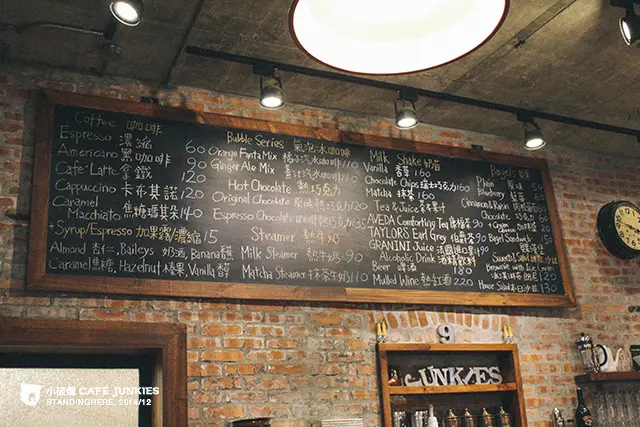 Coffee 咖啡
Espresso 濃縮 60
Americano 黑咖啡 90
Cafe Latte 拿鐵 120
Cappuccino 卡布其諾 120
Caramel
Macchiato 焦糖瑪其朵 140
+Syrup/Espresso 加果露/濃縮 15
Almond 杏仁, Baileys 奶酒, Banana 香蕉
Caramel 焦糖, Hazelnut 榛果, Vanilla 香草
Bubble Series 氣泡冰咖啡
Orange Fanta Mix 橘子汽水咖啡 110
Ginger Ale Mix 薑汁汽水咖啡
Hot Chocolate 熱巧克力
Original Chocolate 原味熱巧克力 120
Espresso Chocolate 咖啡熱巧克力 135
Steamer 熱牛奶
Milk Steamer 熱牛奶 90
Matcha Steamer 抹茶牛奶 110
Milk Shake 奶昔
Vanilla 香草 160
Chocolate Chips 碎巧克力 160
Matcha 抹茶 160
Tea & Juice 茶 果汁
AVEDA Comforting Tea
TAYLORS Earl Grey 伯爵茶 90
GRANINI Juice
Alcoholic Drink 酒精飲料
Beer 啤酒 180
Mulled Wine 熱紅酒 220
Bagels
Plain 原味
Cinnamon & Raisin
Chocolate 巧克力
+ Cream
Bagel Sandwich 150
Brownie with Ice Cream
House Salad 130
9
JUNKIES
小破爛 CAFÉ JUNKIES
STANDINGHERE, 2014/12